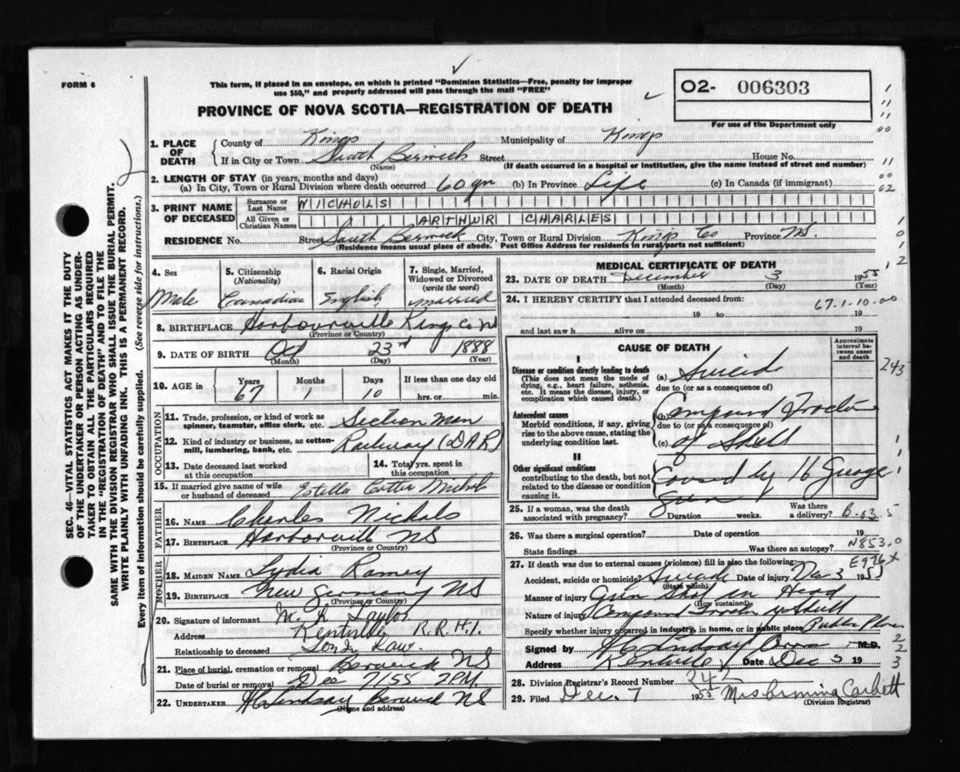 FORM 6
This form, if placed in an envelope, on which is printed "Dominion Statistics—Free, penalty for improper
use $50," and properly addressed will pass through the mail "FREE"
PROVINCE OF NOVA SCOTIA—REGISTRATION OF DEATH
O2- 006303
For use of the Department only
SEC. 46—VITAL STATISTICS ACT MAKES IT THE DUTY
OF THE UNDERTAKER OR PERSON ACTING AS UNDER-
TAKER TO OBTAIN ALL THE PARTICULARS REQUIRED
IN THE "REGISTRATION OF DEATH" AND TO FILE THE
SAME WITH THE DIVISION REGISTRAR WHO SHALL ISSUE THE BURIAL PERMIT.
WRITE PLAINLY WITH UNFADING INK. THIS IS A PERMANENT RECORD.
Every item of information should be carefully supplied. (See reverse side for instructions.)
1. PLACE OF DEATH
County of Kings Municipality of Kings
If in City or Town South Berwick Street House No.
(Name) (If death occurred in a hospital or institution, give the name instead of street and number)
2. LENGTH OF STAY (in years, months and days)
(a) In City, Town or Rural Division where death occurred 60 yrs (b) In Province Life (c) In Canada (if immigrant)
3. PRINT NAME OF DECEASED
Surname or Last Name NICHOLS
All Given or Christian Names ARTHUR CHARLES
RESIDENCE No. Street South Berwick City, Town or Rural Division Kings Co Province N.S.
(Residence means usual place of abode. Post Office Address for residents in rural parts not sufficient)
4. Sex
Male
5. Citizenship (Nationality)
Canadian
6. Racial Origin
English
7. Single, Married, Widowed or Divorced (write the word)
married
8. BIRTHPLACE Harbourville Kings Co NS
(Province or Country)
9. DATE OF BIRTH Oct 23rd 1888
(Month) (Day) (Year)
10. AGE in Years 67 Months 1 Days 10 If less than one day old hrs. or min.
OCCUPATION
11. Trade, profession, or kind of work as
spinner, teamster, office clerk, etc. Section Man
12. Kind of industry or business, as cotton-
mill, lumbering, bank, etc. Railway (DAR)
13. Date deceased last worked
at this occupation
14. Total yrs. spent in
this occupation
15. If married give name of wife
or husband of deceased Estella Nichols
FATHER
16. NAME Charles Nichols
17. BIRTHPLACE Harborville NS
(Province or Country)
MOTHER
18. MAIDEN NAME Lydia Ramey
19. BIRTHPLACE New Germany NS
(Province or Country)
20. Signature of informant M. R Taylor
Address Kentville R.R.#1.
Relationship to deceased Son in Law
21. Place of burial, cremation or removal Berwick NS
Date of burial or removal Dec 7/55 2PM
22. UNDERTAKER Lindsay Berwick NS
(Name and address)
MEDICAL CERTIFICATE OF DEATH
23. DATE OF DEATH December 3 1955
(Month) (Day) (Year)
24. I HEREBY CERTIFY that I attended deceased from 67.1.10.00
19 to 19
and last saw h alive on 19
CAUSE OF DEATH
Approximate interval between onset and death
I
Disease or condition directly leading to death
(This does not mean the mode of
dying, e.g., heart failure, asthenia,
etc. It means the disease, injury, or
complication which caused death.)
(a) Suicide
due to (or as a consequence of)
243
Antecedent causes
Morbid conditions, if any, giving
rise to the above cause, stating the
underlying condition last.
(b) Compound Fracture
due to (or as a consequence of)
(c) of Skull
II
Other significant conditions
contributing to the death, but not
related to the disease or condition
causing it.
Caused by 16 Guage
Gun
25. If a woman, was the death
associated with pregnancy? Duration weeks. Was there a delivery?
26. Was there a surgical operation? Date of operation 19
State findings Was there an autopsy?
N853.0
E976 x
27. If death was due to external causes (violence) fill in also the following:
Accident, suicide or homicide? Suicide Date of injury Dec 3 1955
(State which)
Manner of injury Gun Shot in Head
(How sustained)
Nature of injury Compound Skull
Specify whether injury occurred in industry, in home, or in public place Public Place
Signed by Lindsay M.D.
Address Kentville Date Dec 5 19
28. Division Registrar's Record Number 242
29. Filed Dec 7 1955
(Division Registrar)